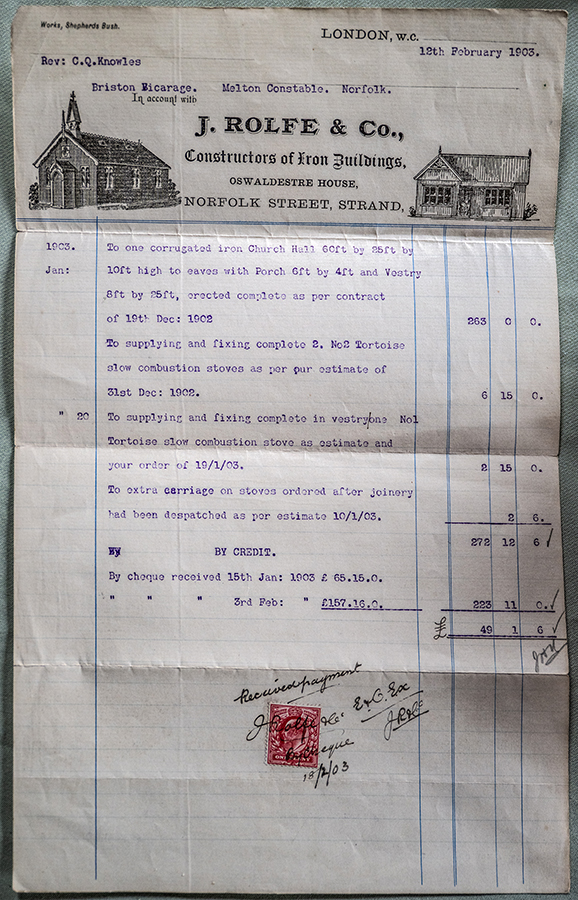 Works, Shepherds Bush.
LONDON, W.C.
12th February 1903.
Rev: C.Q.Knowles
Briston Vicarage. Melton Constable. Norfolk.
In account with
J. ROLFE & Co.,
Constructors of Iron Buildings,
OSWALDESTRE HOUSE,
NORFOLK STREET, STRAND,
1903. To one corrugated iron Church Hall 60ft by 25ft by
Jan: 10ft high to eaves with Porch 6ft by 4ft and Vestry
8ft by 25ft, erected complete as per contract
of 19th Dec: 1902 263 0 0.
To supplying and fixing complete 2. No2 Tortoise
slow combustion stoves as per our estimate of
31st Dec: 1902. 6 15 0.
" 20 To supplying and fixing complete in vestry/one No1
Tortoise slow combustion stove as estimate and
your order of 19/1/03. 2 15 0.
To extra carriage on stoves ordered after joinery
had been despatched as per estimate 10/1/03. 2 6.
272 12 6
BY CREDIT.
By cheque received 15th Jan: 1903 £ 65.15.0.
" " " 3rd Feb: " £157.16.0. 223 11 0.
£ 49 1 6
Received payment
J Rolfe & Co E & O. Ex
J R & Co
cheque
18/2/03
ONE PENNY